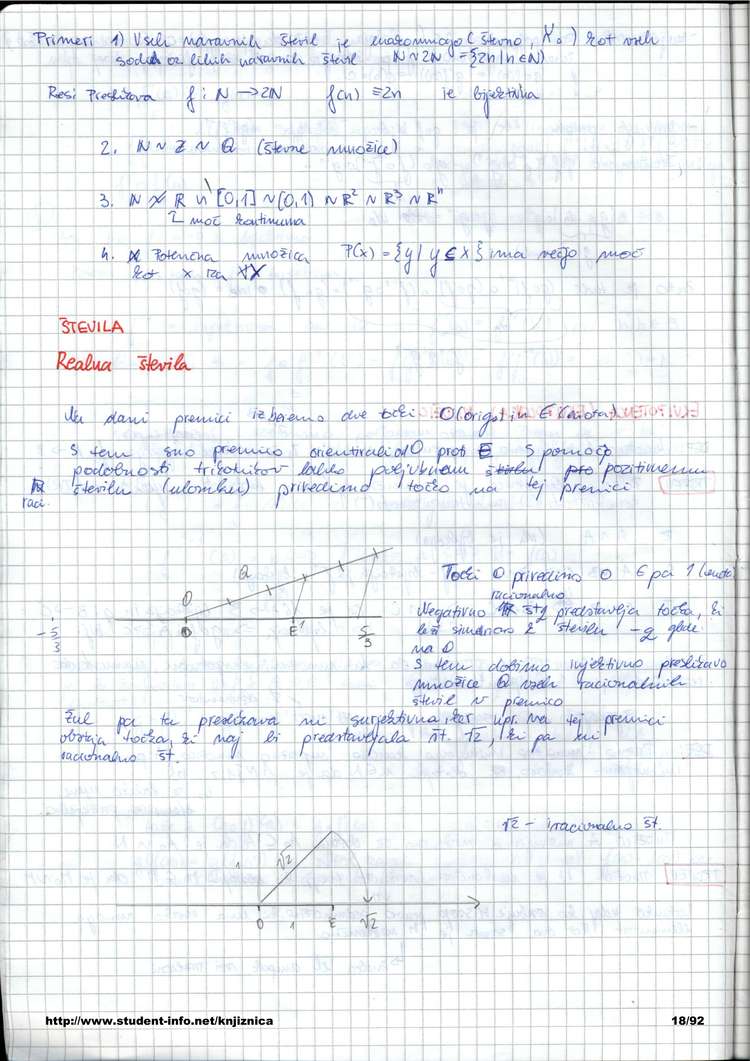 Primeri 1) Vseh naravnih števil je enakomnogo (števno, ℵ₀) kot vseh
sodih oz lihih naravnih števil ℕ ~ 2ℕ = {2n | n ∈ ℕ}
Res: Preslikava f: ℕ → 2ℕ f(n) = 2n je bijektivna
2. ℕ ~ ℤ ~ ℚ (števne množice)
3. ℕ ≁ ℝ ~ [0,1] ~ (0,1) ~ ℝ² ~ ℝ³ ~ ℝⁿ
moč kontinuuma
4. Potenčna množica P(X) = {y | y ⊆ X} ima večjo moč
kot X za ∀X
ŠTEVILA
Realna števila
Na dani premici izberemo dve točki O (origo) in E (enota).
S tem smo premico orientirali od O proti E S pomočjo
podobnosti trikotnikov lahko poljubnemu pozitivnemu
raci. številu (ulomku) priredimo točko na tej premici
Q
O
-5/3 0 E 1 5/3
Točki O priredimo 0 E pa 1 (enota)
racionalno
Negativno št q predstavlja točka, ki
leži simetrično k številu -q glede
na O
S tem dobimo injektivno preslikavo
množice Q vseh racionalnih
števil v premico
Žal pa ta preslikava ni surjektivna, ker npr. na tej premici
obstaja točka, ki naj bi predstavljala št. √2, ki pa ni
racionalno št.
√2 - iracionalno št.
1 √2
0 1 E √2
http://www.student-info.net/knjiznica 18/92